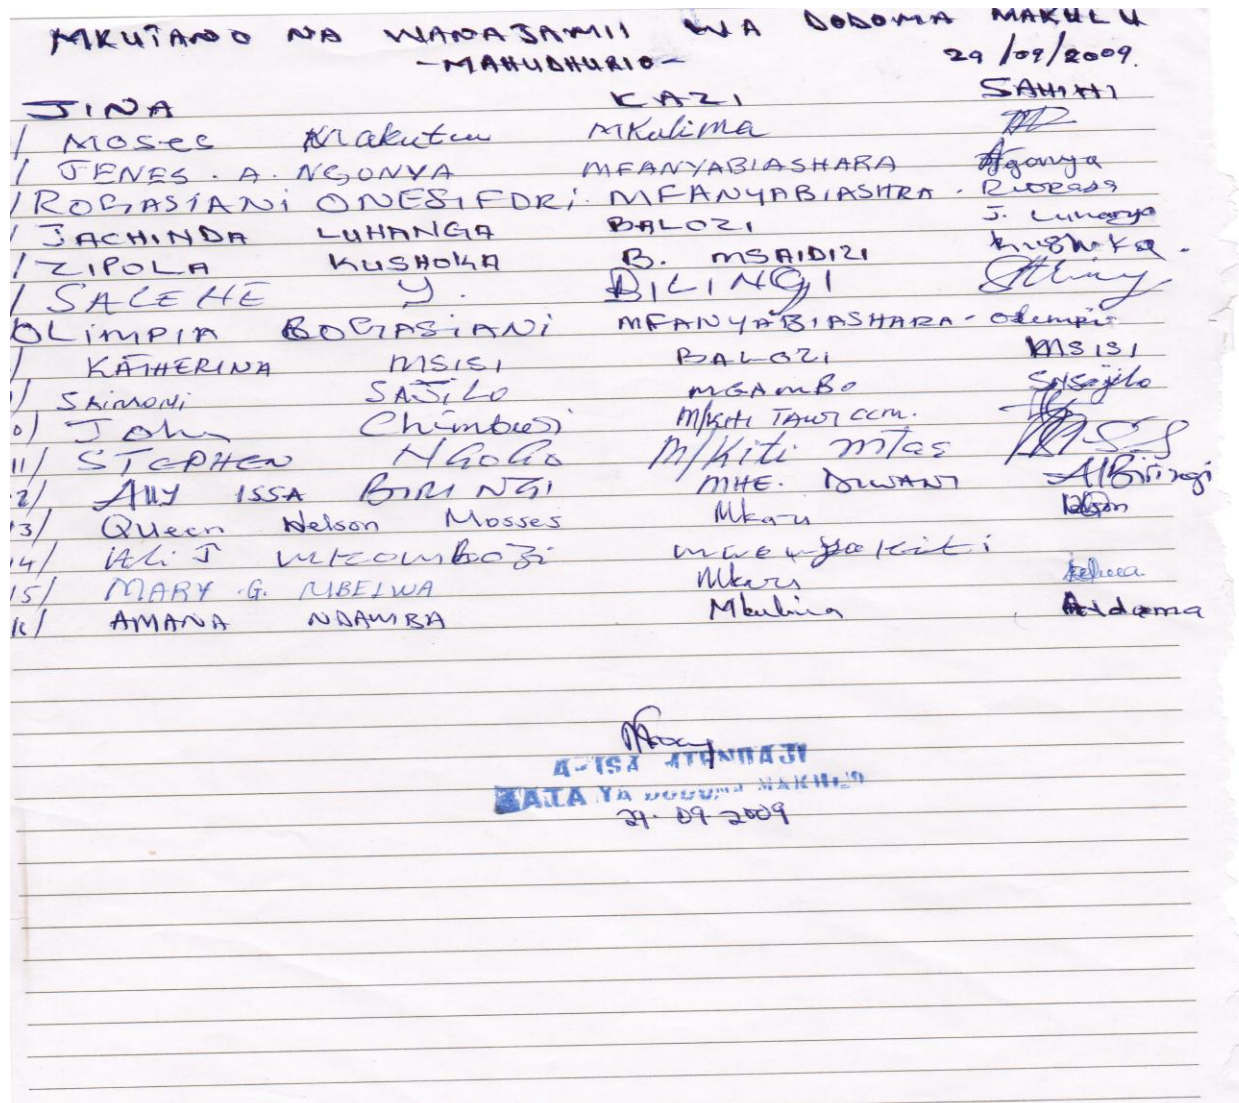 MKUTANO NA WANAJAMII WA DODOMA MAKULU
-MAHUDHURIO- 29/09/2009.
JINA KAZI SAHIHI
/ Moses Makutu Mkulima
/ JENES . A . NGONYA MFANYABIASHARA Ngonya
/ ROGASIANi ONESIFORi MFANYABIASHRA .
/ JACHINDA LUHANGA BALOZI J. Luhanga
/ ZIPOLA KUSHOKA B. MSAIDIZI Kushoka .
/ SALEHE Y. BILINGI
OLiMPIA ROGASIANi MFANYABIASHARA - Olempia
/ KATHERINA MSISI BALOZI MSISI
/ SAimoni SAJiLO MGAMBO SNSajilo
0/ John M/KITI TAWI CCM.
11/ STEPHEN M/Kiti mtaa
2/ Ally ISSA BIRINGI MHE. DIWANI AIBiringi
3/ Queen Nelson Mosses
14/ Ali J mkombozi mwenyekiti
15/ MARY .G. MBELWA
/ AMANA NDAMBA Mkulima
AFISA MTENDAJI
KATA YA DODOMA MAKULU
29.09.2009